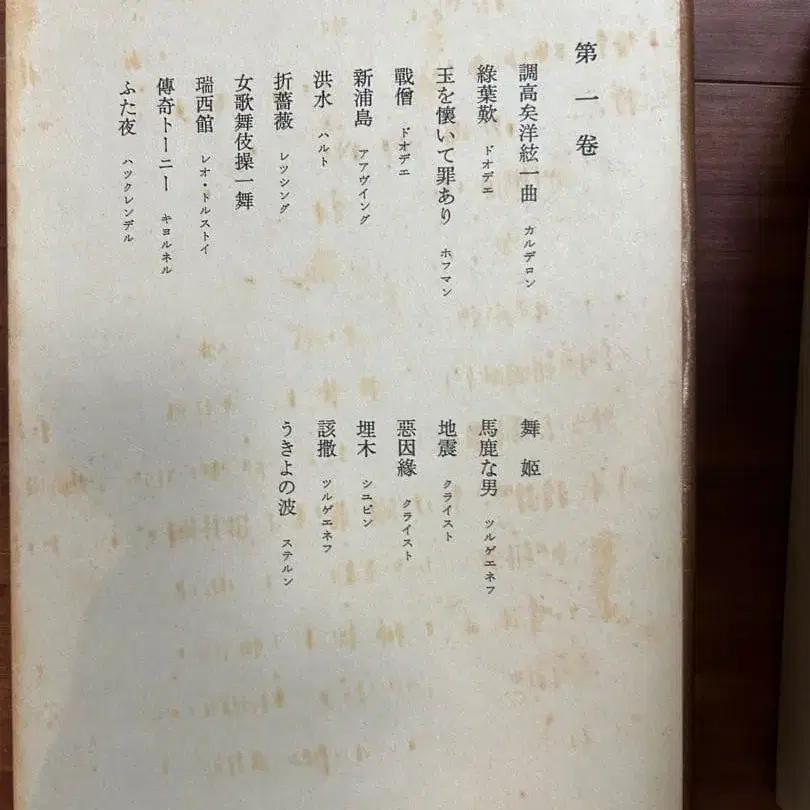 第一卷
調高矣洋絃一曲 カルデロン
綠葉歎 ドオデエ
玉を懷いて罪あり ホフマン
戰僧 ドオデエ
新浦島 アアヴイング
洪水 ハルト
折薔薇 レツシング
女歌舞伎操一舞
瑞西館 レオ・トルストイ
傳奇トーニー キヨルネル
ふた夜 ハツクレンデル
舞姬
馬鹿な男 ツルゲエネフ
地震 クライスト
惡因緣 クライスト
埋木 シユビン
該撒 ツルゲエネフ
うきよの波 ステルン